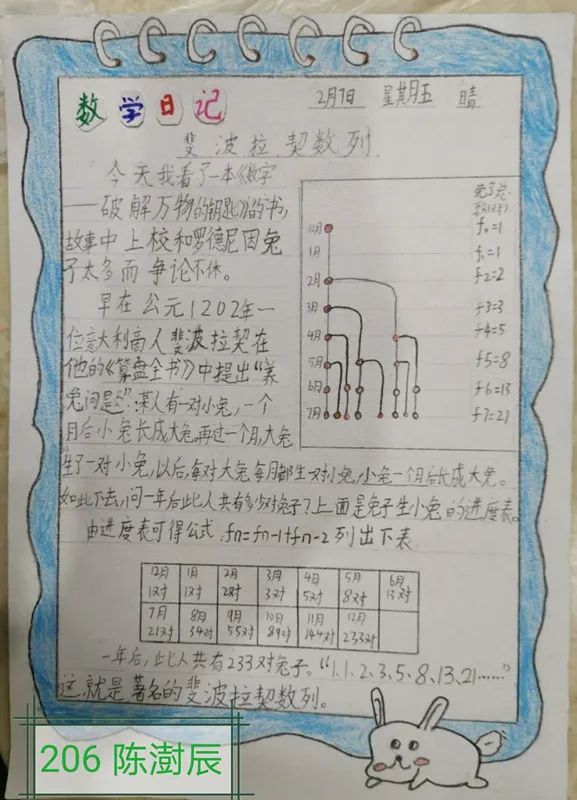 数学日记 2月7日 星期五 晴
斐波拉契数列
今天我看了一本《数字
——破解万物的钥匙》的书,
故事中上校和罗德尼因兔
子太多而争论不休。
早在公元1202年一
位意大利商人斐波拉契在
他的《算盘全书》中提出“养
兔问题”:某人有一对小兔,一个
月后小兔长成大兔,再过一个月,大兔
生了一对小兔,以后,每对大兔每月都生一对小兔,小兔一个月后长成大兔。
如此下去,问一年后此人共有多少对兔子?上面是兔子生小兔的进度表。
由进度表可得公式:fn=fn-1+fn-2 列出下表
12月 f0=1
1月 f1=1
2月 f2=2
3月 f3=3
4月 f4=5
5月 f5=8
6月 f6=13
7月 f7=21
12月 1月 2月 3月 4月 5月 6月
1对 1对 2对 3对 5对 8对 13对
7月 8月 9月 10月 11月 12月
21对 34对 55对 89对 144对 233对
一年后,此人共有233对兔子。“1、1、2、3、5、8、13、21……”
这就是著名的斐波拉契数列。
206 陈澍辰